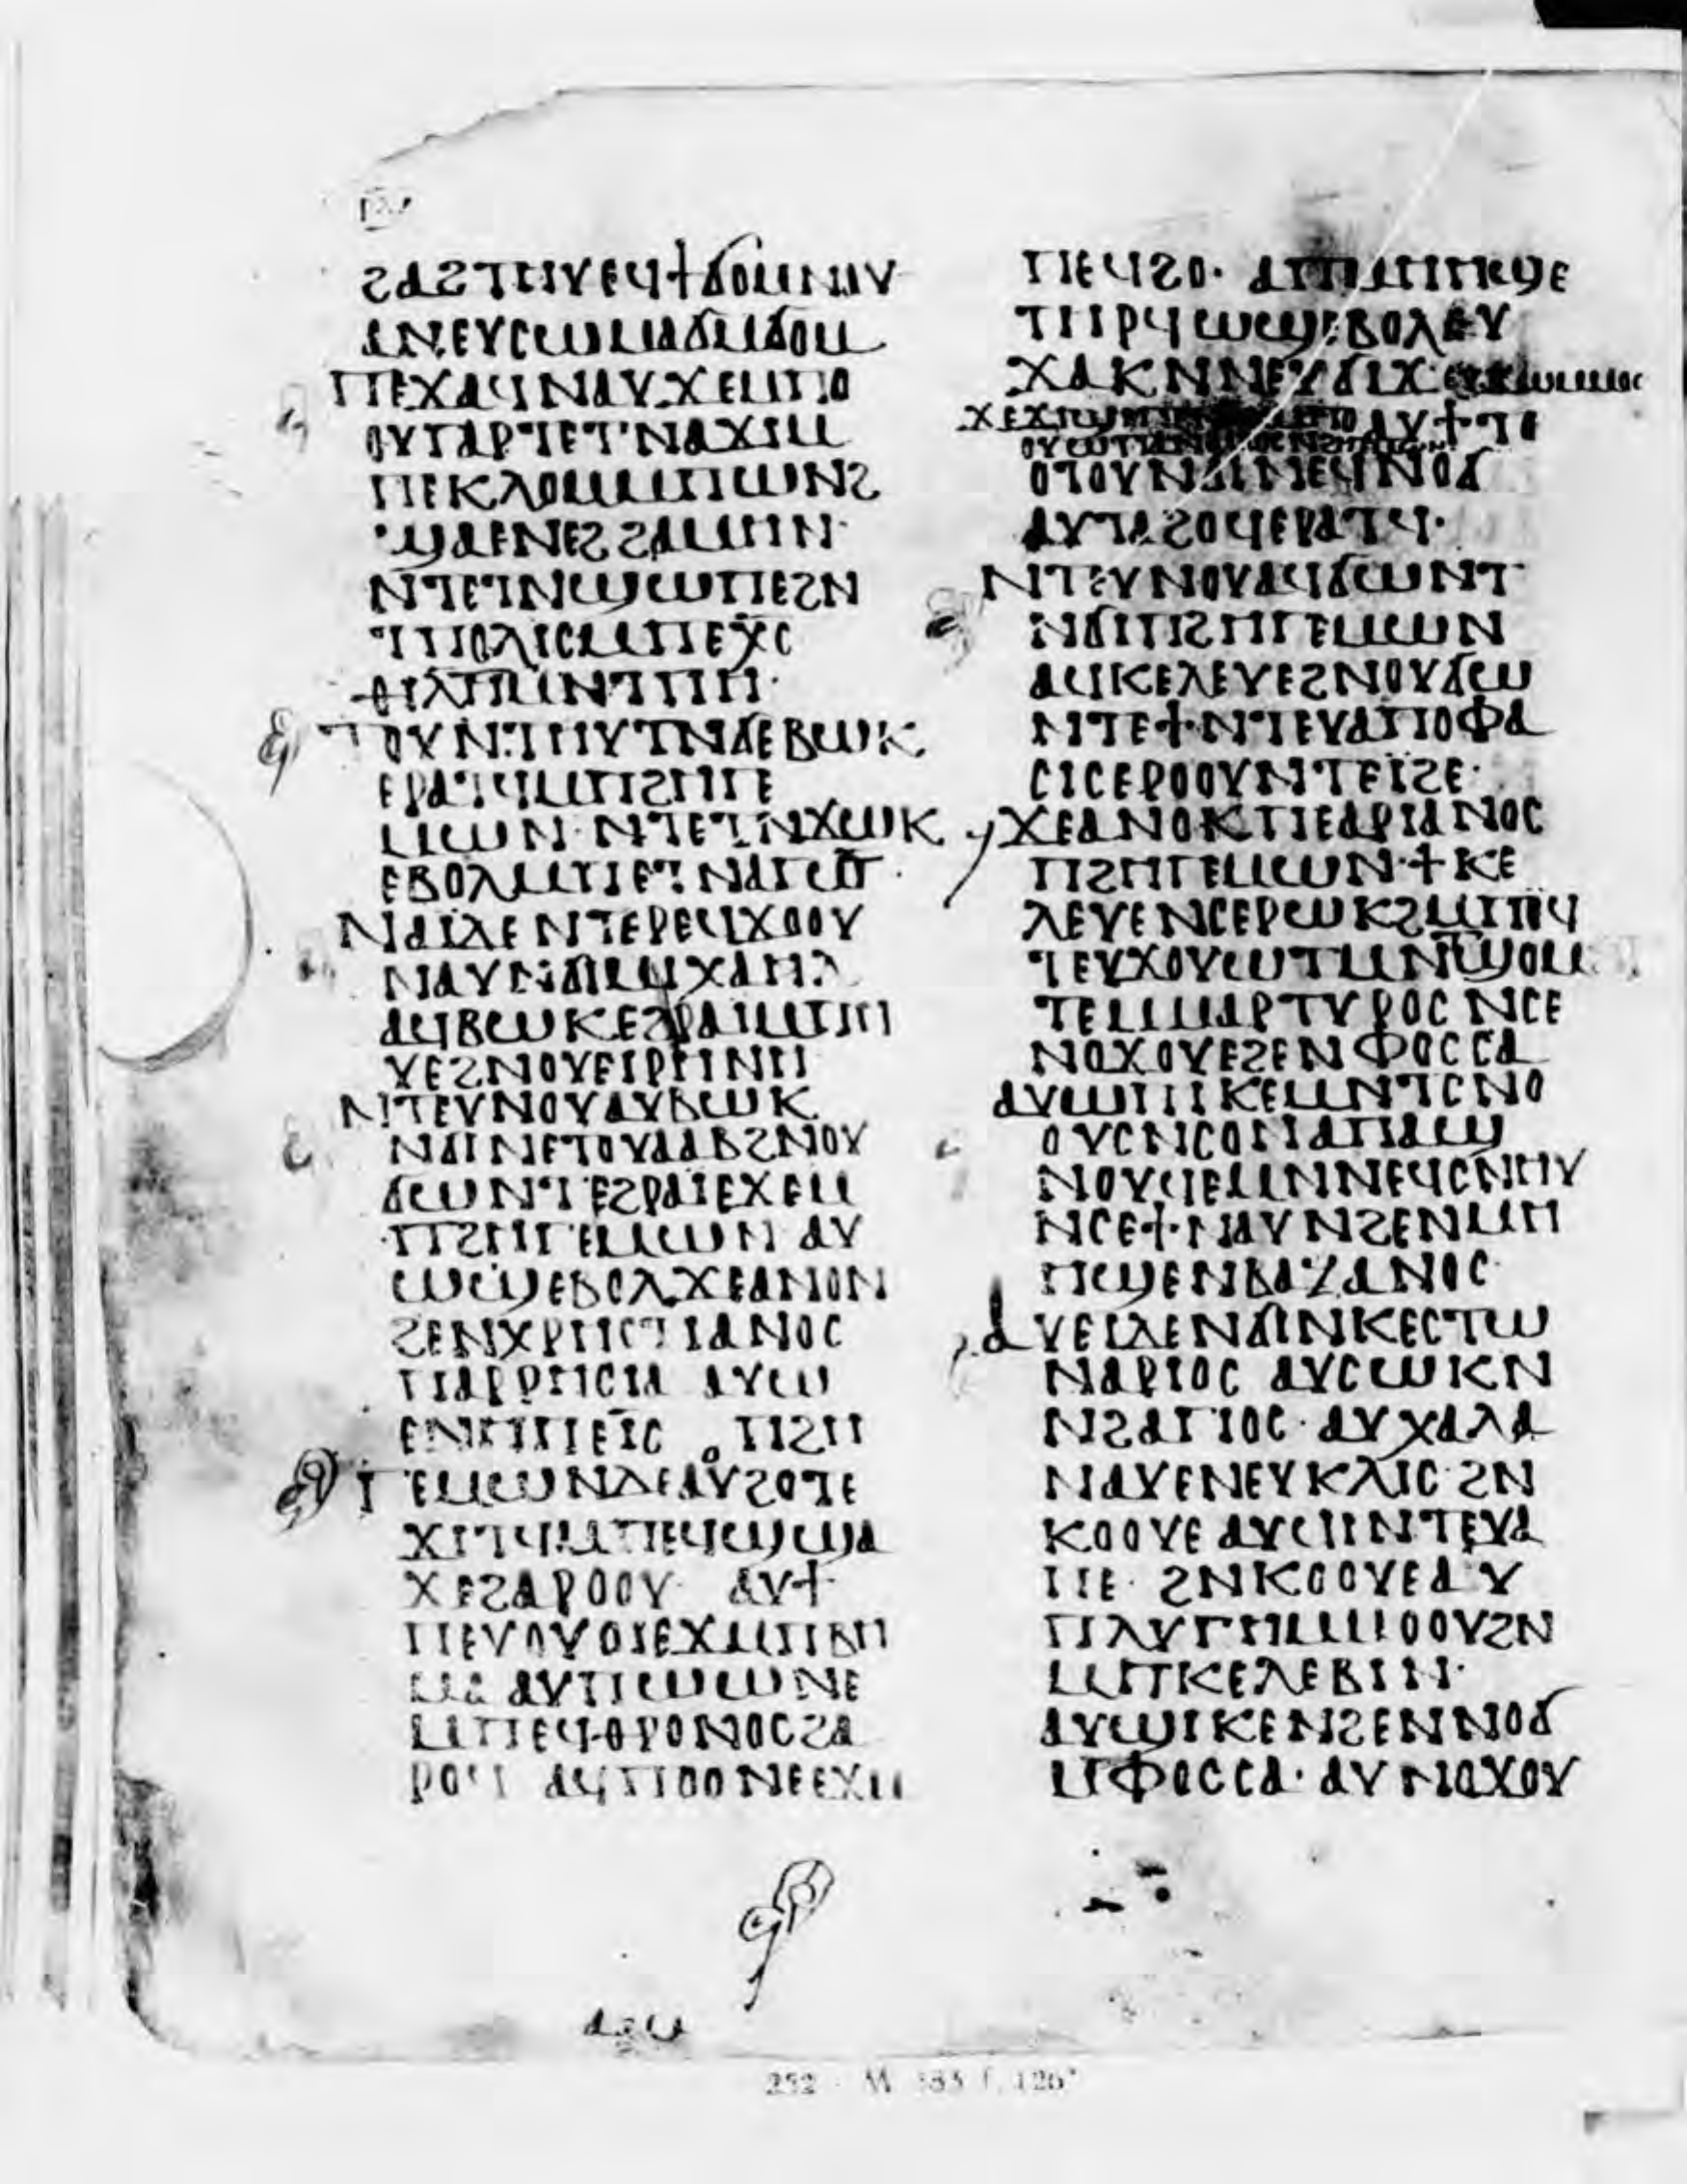 ϨⲁϨⲧⲏⲩⲉϥϯϭⲟⲙⲛⲁⲩ
ⲁⲛⲉⲩⲥⲱⲙⲁϭⲙϭⲟⲙ
ⲡⲉϫⲁϥⲛⲁⲩϫⲉⲙⲡⲟ
ⲟⲩⲅⲁⲣⲧⲉⲧⲛⲁϫⲓⲙ
ⲡⲉⲕⲗⲟⲙⲙⲡⲱⲛϩ
ϣⲁⲉⲛⲉϩϩⲁⲙⲏⲛ·
ⲛⲧⲉⲧⲛϣⲱⲡⲉϩⲛ
ⲧⲡⲟⲗⲓⲥⲙⲡⲉⲭ̅ⲥ
ⲑⲓⲗⲏⲙⲛⲧⲡⲉ·
ⲧⲟⲩⲛⲧⲏⲩⲧⲛϭⲉⲃⲱⲕ
ⲉⲣⲁⲧϥⲙⲡϩⲏⲅⲉ
ⲙⲱⲛ·ⲛⲧⲉⲧⲛϫⲱⲕ
ⲉⲃⲟⲗⲙⲡⲉⲧⲛⲁⲅⲱⲛ·
ⲛⲁⲓⲇⲉⲛⲧⲉⲣⲉϥϫⲟⲟⲩ
ⲛⲁⲩⲛϭⲓⲙⲓⲭⲁⲏⲗ
ⲁϥⲃⲱⲕⲉϩⲣⲁⲓⲙⲡⲏ
ⲩⲉϩⲛⲟⲩⲉⲓⲣⲏⲛⲏ
ⲛⲧⲉⲩⲛⲟⲩⲁⲩⲃⲱⲕ
ⲛϭⲓⲛⲉⲧⲟⲩⲁⲁⲃϩⲛⲟⲩ
ϭⲱⲛⲧⲉϩⲣⲁⲓⲉϫⲉⲙ
ⲡϩⲏⲅⲉⲙⲱⲛ ⲁⲩ
ⲱϣⲉⲃⲟⲗϫⲉⲁⲛⲟⲛ
ϩⲉⲛⲭⲣⲏⲥⲧⲓⲁⲛⲟⲥ
ⲡⲁⲣⲣⲏⲥⲓⲁ ⲁⲩⲱ
ⲉⲛⲏⲡⲉⲓ̅ⲥ ⲡϩⲏ
ⲅⲉⲙⲱⲛⲇⲉⲁⲩϩⲟⲧⲉ
ϫⲓⲧϥⲙⲡⲉϥϣϣⲁ
ϫⲉϩⲁⲣⲟⲟⲩ ⲁⲩϯ
ⲡⲉⲩⲟⲩⲟⲓⲉϫⲙⲡⲃⲏ
ⲙⲁ ⲁⲩⲡⲱⲱⲛⲉ
ⲙⲡⲉϥⲑⲣⲟⲛⲟⲥϩⲁ
ⲣⲟϥ ⲁϥⲡⲟⲟⲛⲉⲉϫⲙ
ⲡⲉϥϩⲟ· ⲁⲡⲙⲏⲏϣⲉ
ⲧⲏⲣϥⲱϣⲉⲃⲟⲗⲉⲩ
ϫⲁⲕⲛⲛⲉⲩϭⲓϫ
ⲁⲩϯⲡⲉ
ⲟⲧⲟⲩⲛϭⲓⲛⲉϥⲛⲟϭ
ⲁⲩⲧⲁϩⲟϥⲉⲣⲁⲧϥ·
ⲛⲧⲉⲩⲛⲟⲩⲁϥϭⲱⲛⲧ
ⲛϭⲓⲡϩⲏⲅⲉⲙⲱⲛ
ⲁϥⲕⲉⲗⲉⲩⲉϩⲛⲟⲩϭⲱ
ⲛⲧⲉϯⲛⲧⲉⲩⲁⲡⲟⲫⲁ
ⲥⲓⲥⲉⲣⲟⲟⲩⲛⲧⲉⲓ̈ϩⲉ·
ϫⲉⲁⲛⲟⲕⲡⲉⲁⲣⲓⲁⲛⲟⲥ
ⲡϩⲏⲅⲉⲙⲱⲛ·ϯⲕⲉ
ⲗⲉⲩⲉⲛⲥⲉⲣⲱⲕϩⲙⲡⲏϥ
ⲧⲉⲩϫⲟⲩⲱⲧⲙⲛϣⲟⲙ
ⲧⲉⲙⲙⲁⲣⲧⲩⲣⲟⲥ ⲛⲥⲉ
ⲛⲟϫⲟⲩⲉϩⲉⲛⲫⲟⲥⲥⲁ
ⲁⲩⲱⲡⲓⲕⲉⲙⲛⲧⲥⲛⲟ
ⲟⲩⲥⲛⲥⲟⲛⲁⲡⲁⲱ
ⲛⲟⲩϥⲉⲙⲛⲛⲉϥⲥⲛⲏⲩ
ⲛⲥⲉϯⲛⲁⲩⲛϩⲉⲛⲙⲏ
ⲏϣⲉⲛⲃⲁⲍⲁⲛⲟⲥ
ⲁⲩⲉⲓⲇⲉⲛϭⲓⲛⲕⲉⲥⲧⲱ
ⲛⲁⲣⲓⲟⲥ ⲁⲩⲥⲱⲕⲛ
ⲛϩⲁⲅⲓⲟⲥ·ⲁⲩⲭⲁⲗⲁ
ⲛⲁⲩⲉⲛⲉⲩⲕⲗⲓⲥ·ϩⲛ
ⲕⲟⲟⲩⲉⲁⲩϥⲓⲛⲧⲉⲩⲁ
ⲡⲉ· ϩⲛⲕⲟⲟⲩⲉⲁⲩ
ⲡⲗⲩⲅⲏⲙⲙⲟⲟⲩϩⲛ
ⲙⲡⲕⲉⲗⲉⲃⲓⲛ·
ⲁⲩϣⲓⲕⲉⲛϩⲉⲛⲛⲟϭ
ⲙⲫⲟⲥⲥⲁ·ⲁⲩⲛⲟϫⲟⲩ
252 M 583 f. 126ᵛ